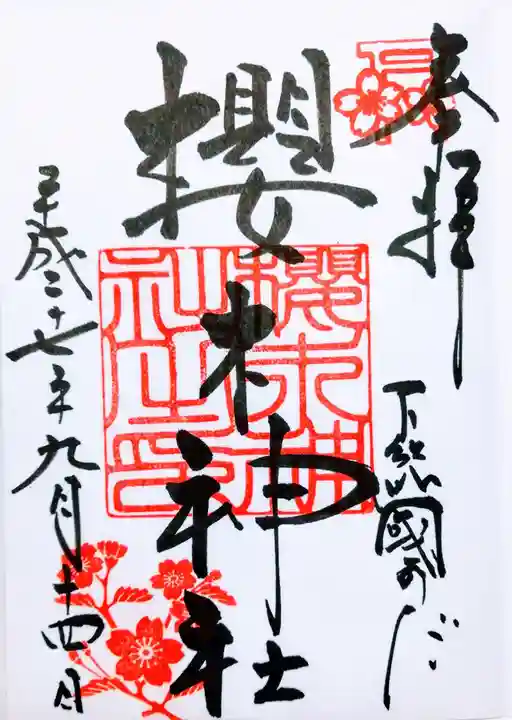 奉拝
下総國のだ
櫻木神社
櫻木神
社之印
平成二十七年九月十四日